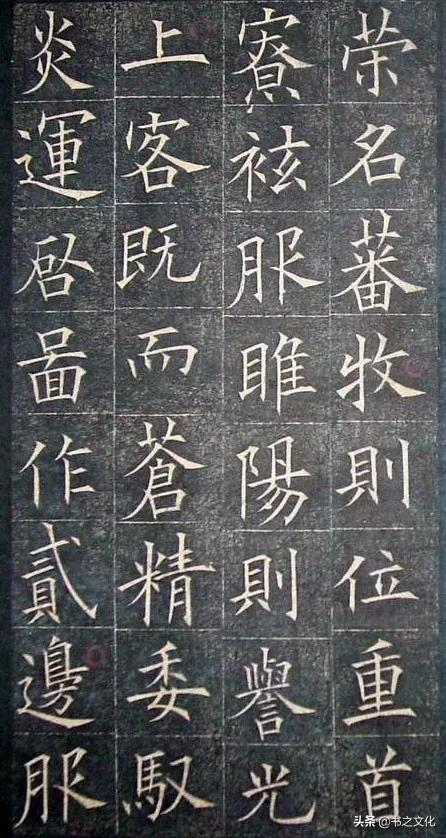 荣名蕃牧則位重首
寮袨服睢陽則譽光
上客既而蒼精委馭
炎運啓啚作貳邊服
头条 @书之文化